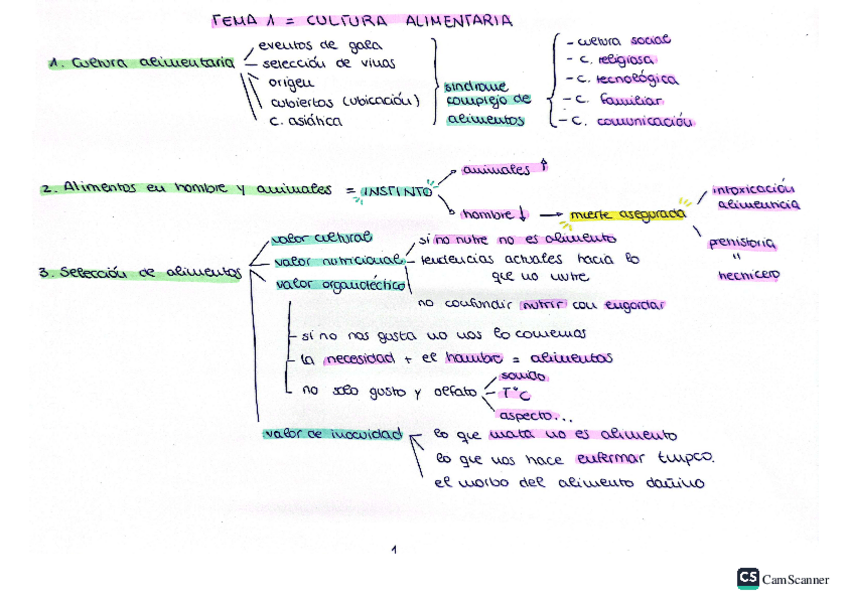 TEMA 1 = CULTURA ALIMENTARIA
1. Cultura alimentaria
eventos de gala
selección de vinos
origen
cubiertos (ubicación)
c. asiática
síndrome
complejo de
alimentos
- cultura social
- c. religiosa
- c. tecnológica
- c. familiar
- c. comunicación
2. Alimentos en hombre y animales = INSTINTO
animales ↑
hombre ↓ → muerte asegurada
intoxicación
alimenticia
prehistoria
"
hechicero
3. Selección de alimentos
valor cultural
valor nutricional
si no nutre no es alimento
tendencias actuales hacia lo
que no nutre
no confundir nutrir con engordar
valor organoléctico
si no nos gusta no nos lo comemos
la necesidad + el hambre = alimentos
no sólo gusto y olfato
sonido
Tª C
aspecto...
valor de inocuidad
lo que mata no es alimento
lo que nos hace enfermar tmpco.
el morbo del alimento dañino
1
CS CamScanner